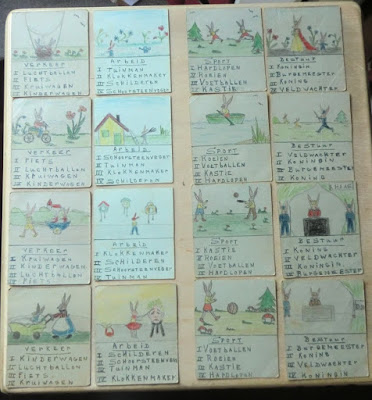 VERKEER
I LUCHTBALLON
II FIETS
III KRUIWAGEN
IV KINDERWAGEN
ARBEID
I TUINMAN
II KLOKKENMAKER
III SCHILDEREN
IV SCHOORSTEENVEGER
SPORT
I HARDLOPEN
II ROEIEN
III VOETBALLEN
IV KASTIE
BESTUUR
I KONINGIN
II BURGEMEESTER
III KONING
IV VELDWACHTER
VERKEER
I FIETS
II LUCHTBALLON
III KRUIWAGEN
IV KINDERWAGEN
ARBEID
I SCHOORSTEENVEGER
II TUINMAN
III KLOKKENMAKER
IV SCHILDEREN
SPORT
I ROEIEN
II VOETBALLEN
III KASTIE
IV HARDLOPEN
BESTUUR
I VELDWACHTER
II KONINGIN
III BURGEMEESTER
IV KONING
VERKEER
I KRUIWAGEN
II KINDERWAGEN
III LUCHTBALLON
IV FIETS
ARBEID
I KLOKKENMAKER
II SCHILDEREN
III SCHOORSTEENVEGER
IV TUINMAN
SPORT
I KASTIE
II ROEIEN
III VOETBALLEN
IV HARDLOPEN
BESTUUR
I KONING
II VELDWACHTER
III KONINGIN
IV BURGEMEESTER
VERKEER
I KINDERWAGEN
II LUCHTBALLON
III FIETS
IV KRUIWAGEN
ARBEID
I SCHILDEREN
II SCHOORSTEENVEGER
III TUINMAN
IV KLOKKENMAKER
SPORT
I VOETBALLEN
II ROEIEN
III KASTIE
IV HARDLOPEN
BESTUUR
I BURGEMEESTER
II KONING
III VELDWACHTER
IV KONINGIN